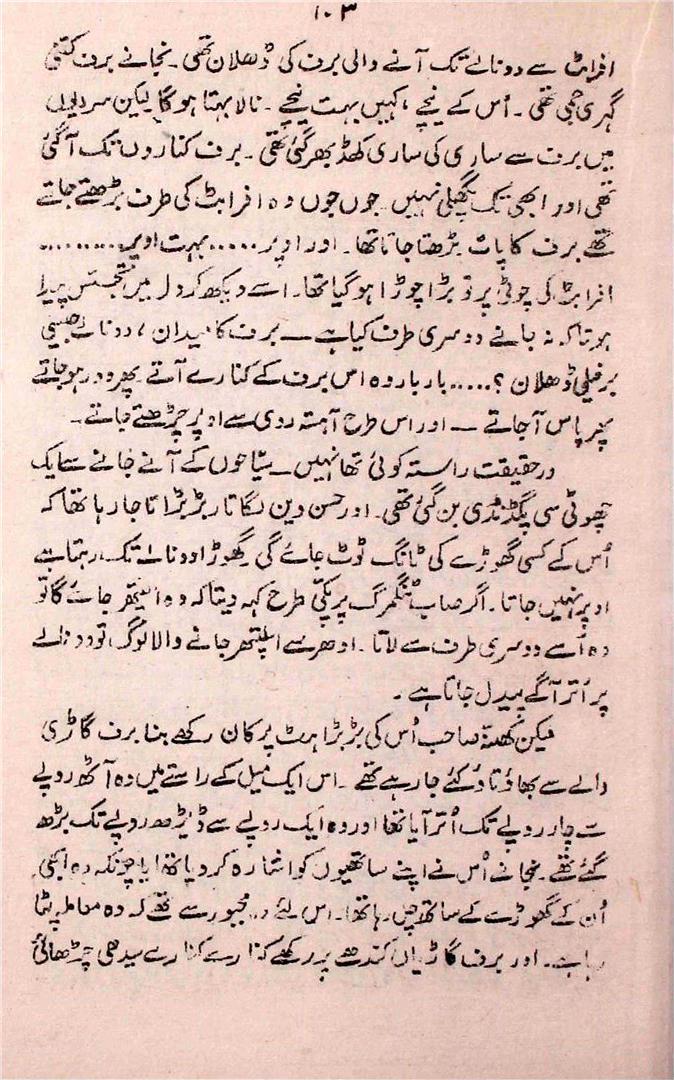 ۱۰۳
افراٹ سے دونالے تک آنے والی برف کی ڈھلان تھی۔ نجانے برف کتنی
گہری جمی تھی۔ اُس کے نیچے، کہیں بہت نیچے۔ نالا بہتا ہوگا لیکن سردیوں
میں برف سے ساری کی ساری کھڈ بھر گئی تھی۔ برف کناروں تک آ گئی
تھی اور ابھی تک پگھلی نہیں۔ جوں جوں وہ افراٹ کی طرف بڑھتے جاتے
تھے برف کا پاٹ بڑھتا جاتا تھا۔ اور اوپر ..... بہت اوپر .........
افراٹ کی چوٹی پر تو بڑا چوڑا ہو گیا تھا۔ اسے دیکھ کر دل میں تجسّس پیدا
ہوتا کہ نہ جانے دوسری طرف کیا ہے ــ برف کا میدان، دونالے جیسی
برفیلی ڈھلان؟ ..... بار بار وہ اس برف کے کنارے آتے پھر دور ہو جاتے
پھر پاس آ جاتے ــ اور اس طرح آہستہ روی سے اوپر چڑھتے جاتے۔
درحقیقت راستہ کوئی تھا نہیں۔ سیّاحوں کے آنے جانے سے ایک
چھوٹی سی پگڈنڈی بن گئی تھی۔ اور حسن دین لگاتار بڑبڑاتا جا رہا تھا کہ
اُس کے کسی گھوڑے کی ٹانگ ٹوٹ جائے گی گھوڑا دونالے تک رہتا ہے
اوپر نہیں جاتا۔ اگر صاب ٹنگمرگ پر پکّی طرح کہہ دیتا کہ وہ الپتھر جائے گا تو
وہ اُسے دوسری طرف سے لاتا۔ ادھر سے الپتھر جانے والا لوگ تو دونالے
پر اُتر آگے پیدل جاتا ہے۔
لیکن کھنّہ صاحب اُس کی بڑبڑاہٹ پر کان رکھے بنا برف گاڑی
والے سے بھاؤ تاؤ کئے جا رہے تھے۔ اس ایک میل کے راستے میں وہ آٹھ روپے
سے چار روپے تک اُتر آیا تھا اور وہ ایک روپے سے ڈیڑھ روپے تک بڑھ
گئے تھے۔ نجانے اُس نے اپنے ساتھیوں کو اشارہ کر دیا تھا یا چونکہ وہ ابھی
اُن کے گھوڑے کے ساتھ چل رہا تھا۔ اس لئے وہ مجبور سے تھے کہ وہ معاملہ پٹا
رہا ہے۔ اور برف گاڑیاں کندھے پر رکھے کنارے کنارے سیدھی چڑھائی